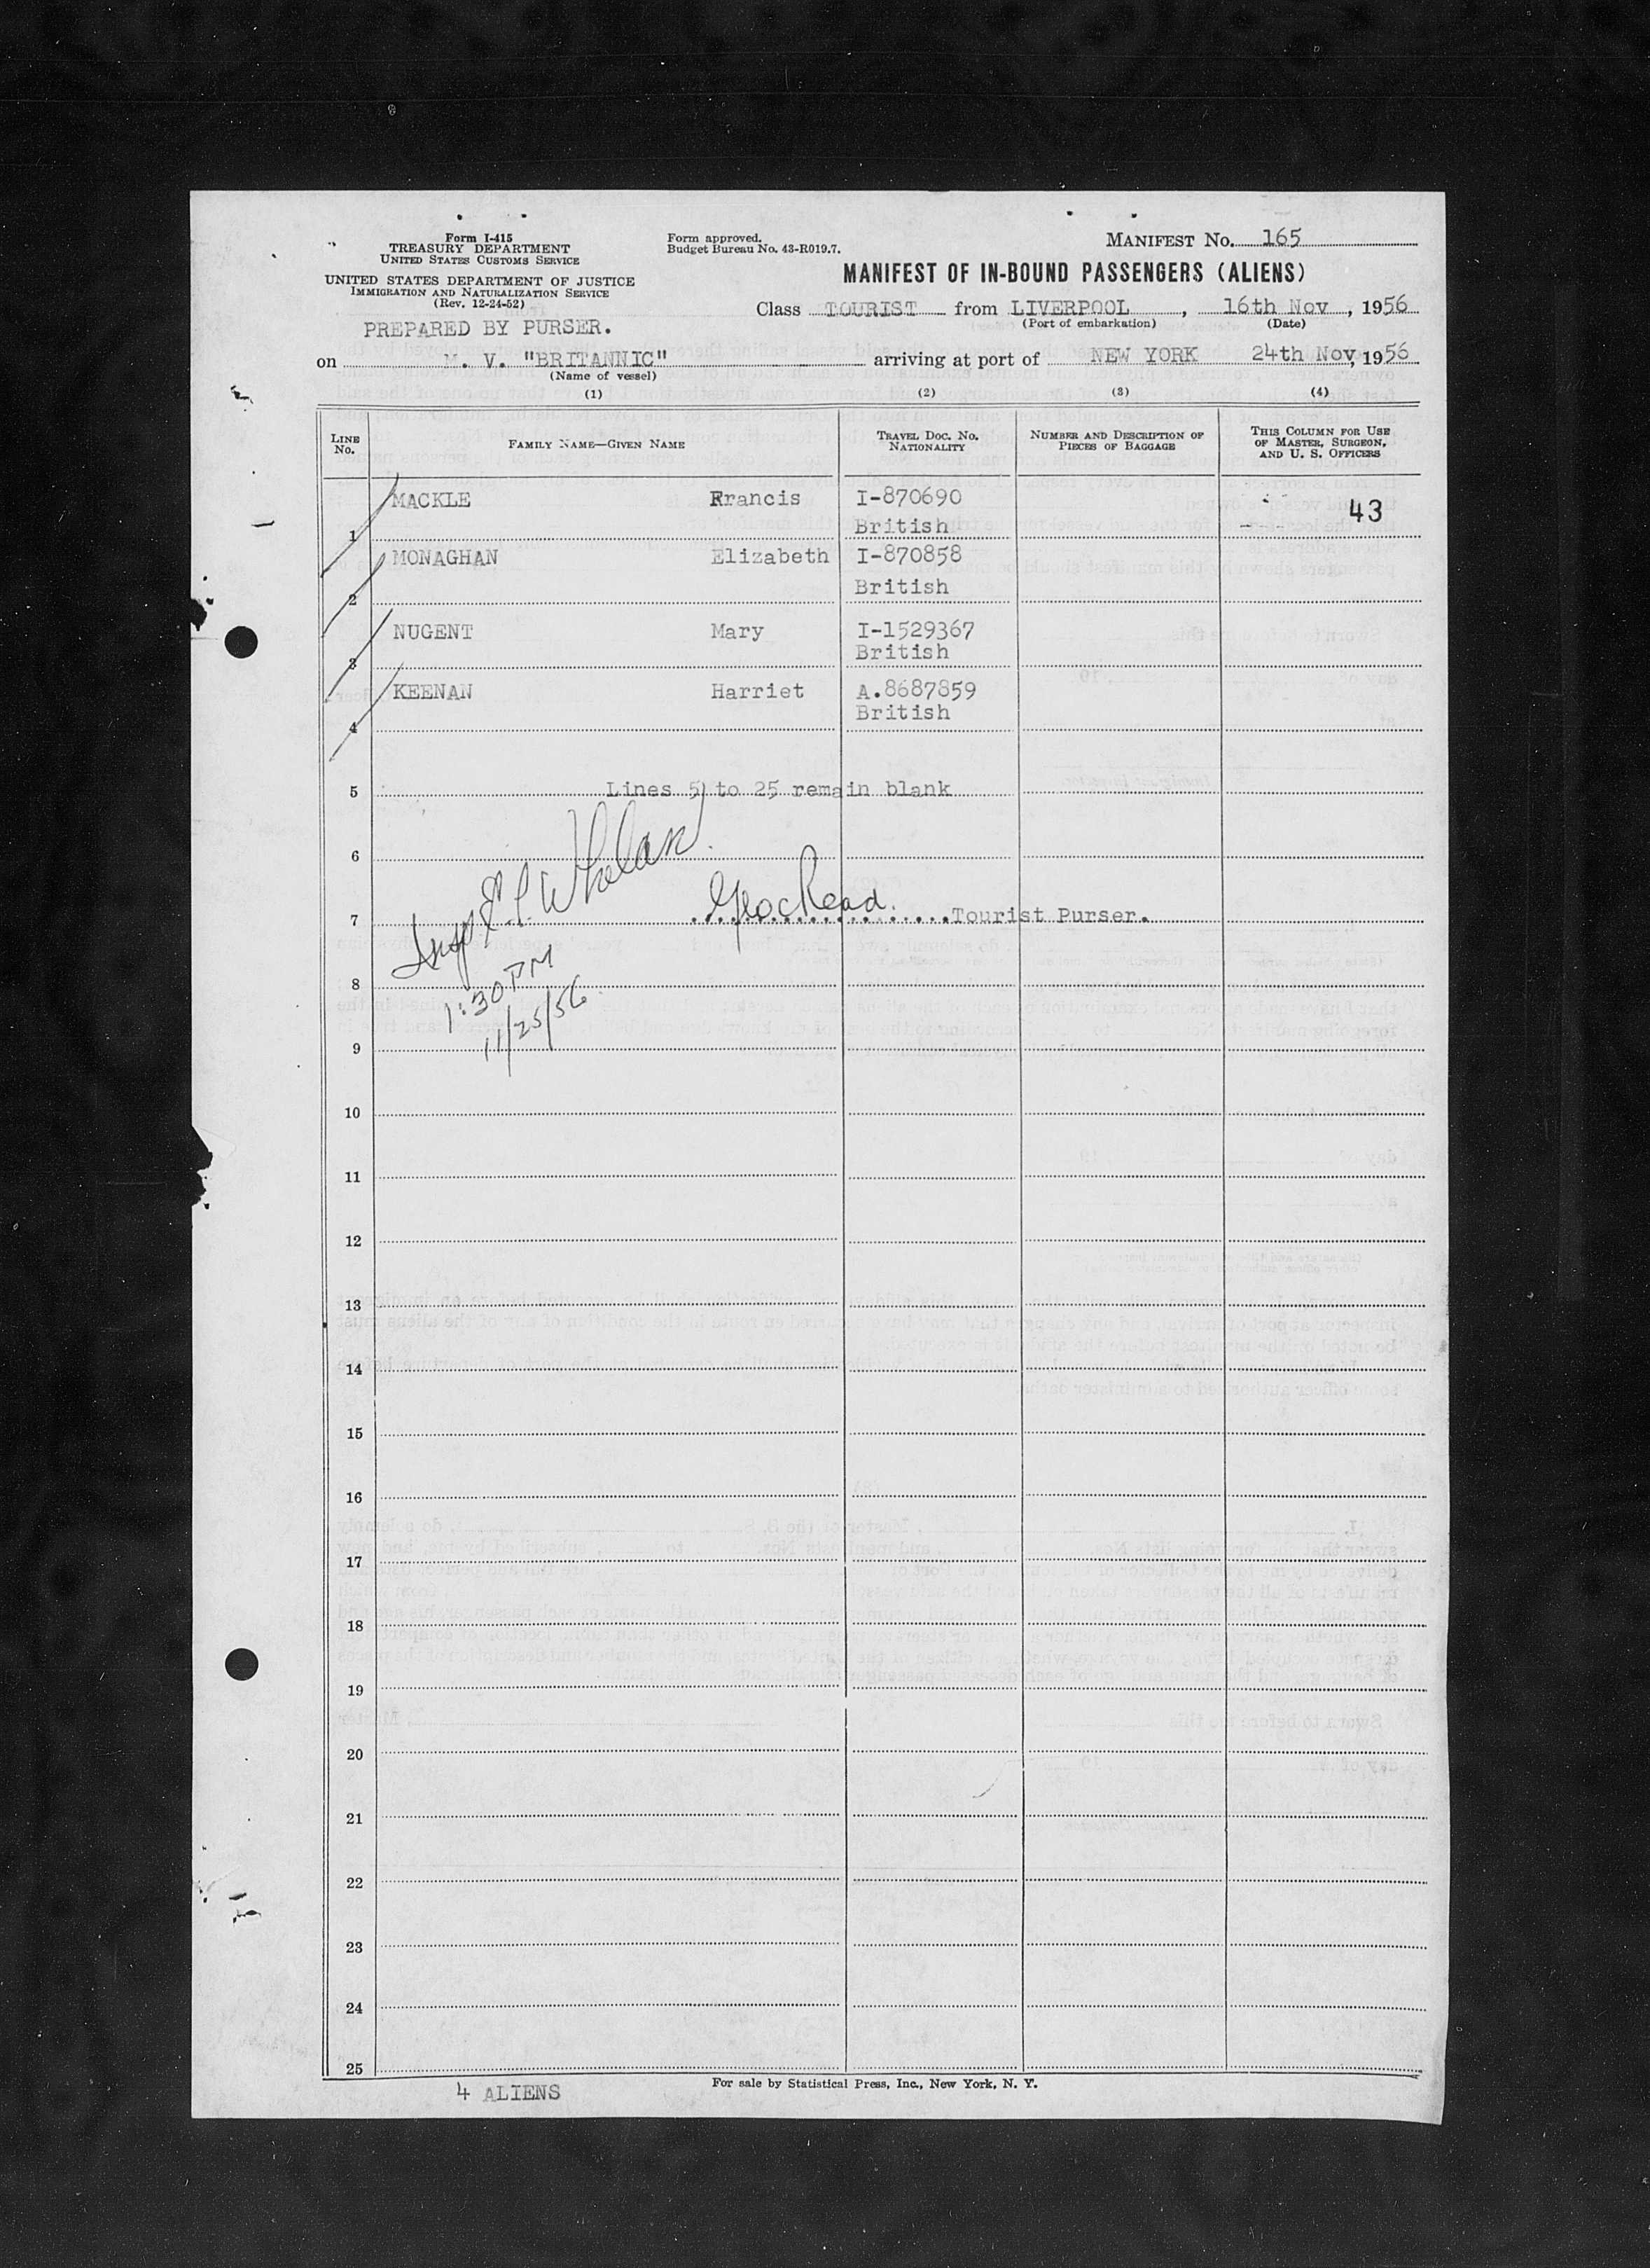 Form I-415
TREASURY DEPARTMENT
UNITED STATES CUSTOMS SERVICE
UNITED STATES DEPARTMENT OF JUSTICE
IMMIGRATION AND NATURALIZATION SERVICE
(Rev. 12-24-52)
PREPARED BY PURSER.
Form approved.
Budget Bureau No. 43-R019.7.
MANIFEST No. 165
MANIFEST OF IN-BOUND PASSENGERS (ALIENS)
Class TOURIST from LIVERPOOL, 16th Nov, 1956
(Port of embarkation) (Date)
on M. V. "BRITANNIC" arriving at port of NEW YORK 24th Nov, 1956
(Name of vessel)
(1) (2) (3) (4)
LINE No. FAMILY NAME—GIVEN NAME TRAVEL DOC. NO. NATIONALITY NUMBER AND DESCRIPTION OF PIECES OF BAGGAGE THIS COLUMN FOR USE OF MASTER, SURGEON, AND U. S. OFFICERS
1 MACKLE Francis I-870690 43
British
2 MONAGHAN Elizabeth I-870858
British
3 NUGENT Mary I-1529367
British
4 KEENAN Harriet A.8687859
British
5 Lines 5 to 25 remain blank
6
Whelan
7 Tourist Purser.
8
1:30 PM
11/25/56
9
10
11
12
13
14
15
16
17
18
19
20
21
22
23
24
25
4 ALIENS
For sale by Statistical Press, Inc., New York, N. Y.